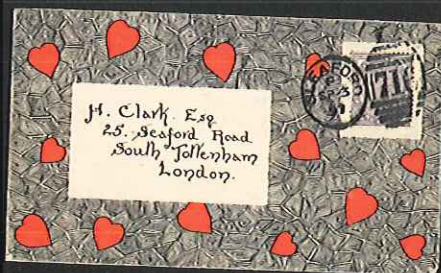 H. Clark Esq
25. Seaford Road
South Tottenham
London.